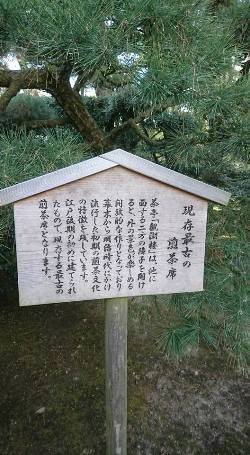 現存最古の
煎茶席
茶亭「観瀾楼」は、池に
面する二方の障子を開け
ると、外の景色が楽しめる
開放的な作りとなっており
幕末から明治時代にかけ
流行した初期の煎茶文化
の特徴を残しています。
江戸後期の初めに建てられ
たもので、現存する最古の
煎茶席となります。